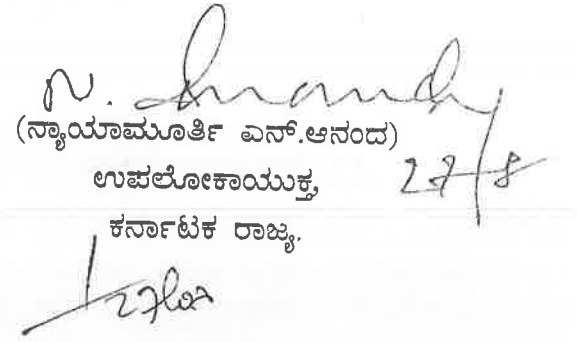 N. Anand
(ನ್ಯಾಯಾಮೂರ್ತಿ ಎನ್.ಆನಂದ)
27/8
ಉಪಲೋಕಾಯುಕ್ತ,
ಕರ್ನಾಟಕ ರಾಜ್ಯ.